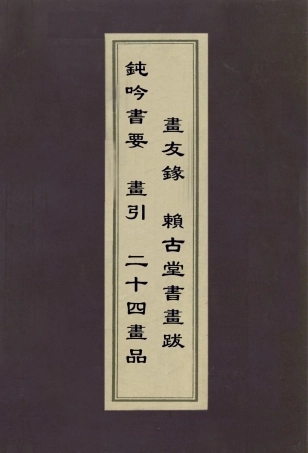 畫友錄　賴古堂書畫跋
鈍吟書要　畫引　二十四畫品